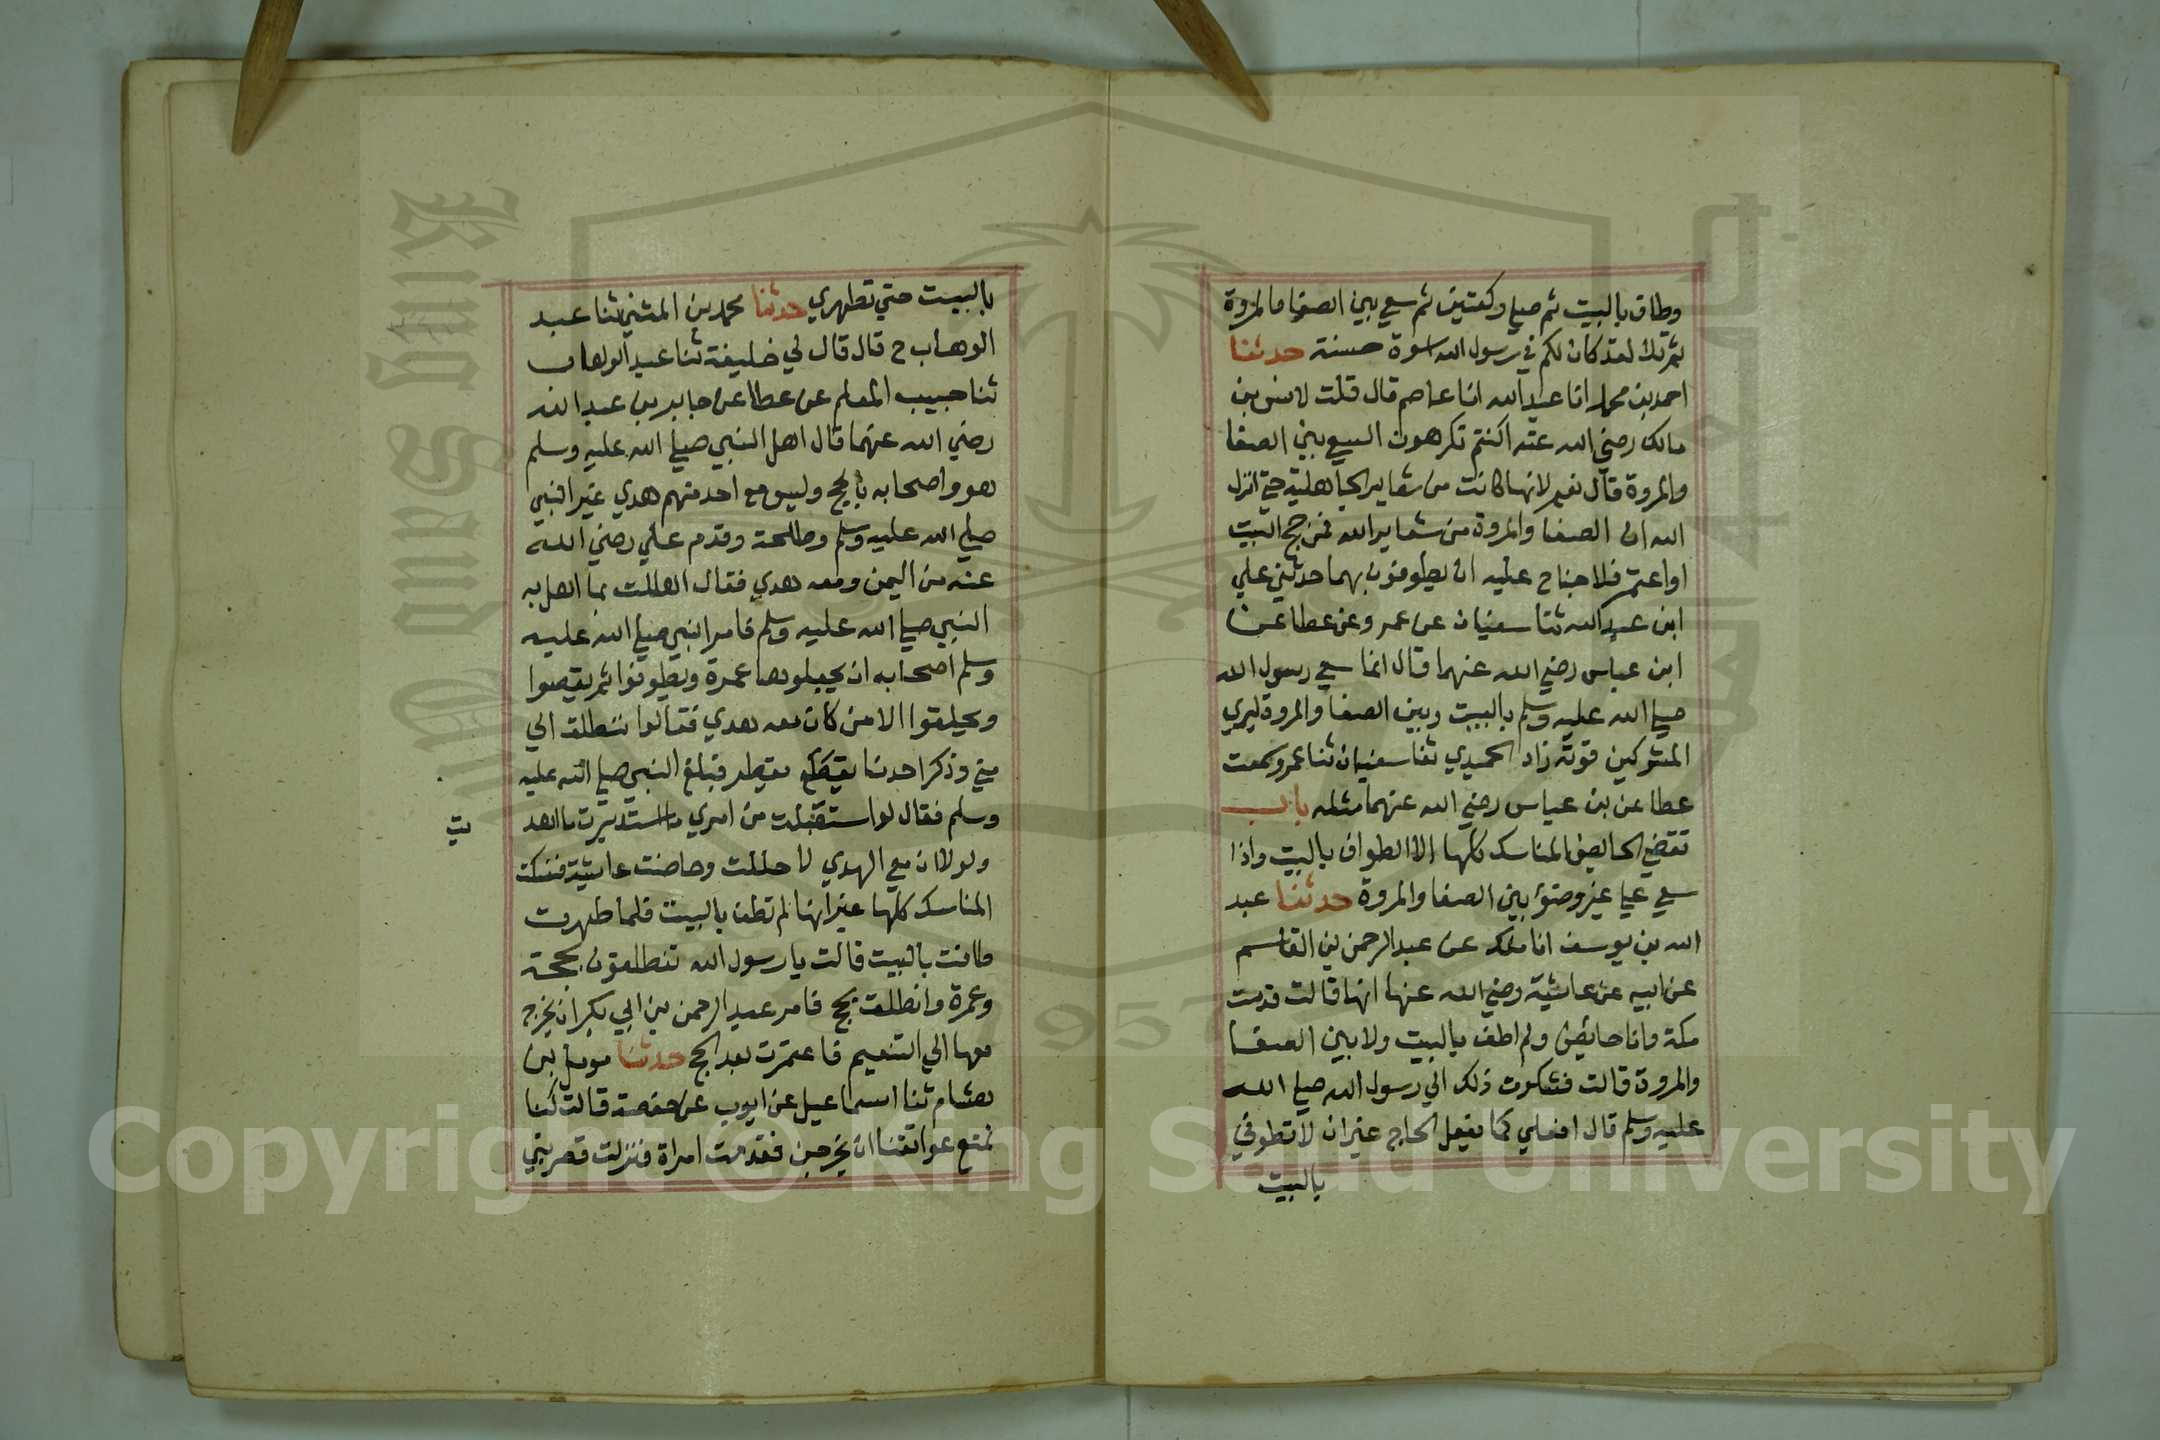 وطاف بالبيت ثم صلي ركعتين ثم سعي بين الصفا والمروة
ثم تلا لقد كان لكم في رسول الله اسوة حسنة حدثنا
احمد بن محمد انا عبد الله انا عاصم قال قلت لانس بن
مالك رضي الله عنه اكنتم تكرهون السعي بين الصفا
والمروة قال نعم لانها كانت من شعاير الجاهلية حتي انزل
الله ان الصفا والمروة من شعاير الله فمن حج البيت
او اعتمر فلا جناح عليه ان يطوفون بهما حدثني علي
ابن عبد الله ثنا سفيان عن عمر وعن عطا عن
ابن عباس رضي الله عنهما قال انما سعي رسول الله
صلي الله عليه وسلم بالبيت وبين الصفا والمروة ليري
المشركين قوته زاد الحميدي ثنا سفيان ثنا عمرو سمعت
عطا عن بن عباس رضي الله عنهما مثله باب
تقضي الحايض المناسك كلها الا الطواف بالبيت واذا
سعي علي غير وضوء بين الصفا والمروة حدثنا عبد
الله بن يوسف انا ملك عن عبد الرحمن بن القاسم
عن ابيه عن عايشة رضي الله عنها انها قالت قدمت
مكة وانا حايض ولم اطف بالبيت ولا بين الصفا
والمروة قالت فشكوت ذلك الي رسول الله صلي الله
عليه وسلم قال افعلي كما يفعل الحاج غير ان لا تطوفي
بالبيت
بالبيت حتي تطهري حدثنا محمد بن المثني ثنا عبد
الوهاب ح قال قال لي خليفة ثنا عبد الوهاب
ثنا حبيب المعلم عن عطا عن جابر بن عبد الله
رضي الله عنهما قال اهل النبي صلي الله عليه وسلم
هو واصحابه بالحج وليس مع احد منهم هدي غير النبي
صلي الله عليه وسلم وطلحة وقدم علي رضي الله
عنه من اليمن ومعه هدي فقال اهللت بما اهل به
النبي صلي الله عليه وسلم فامر النبي صلي الله عليه
وسلم اصحابه ان يجعلوها عمرة ويطوفوا ثم يقصروا
ويحلقوا الا من كان معه هدي فقالوا ننطلق الي
مني وذكر احدنا يقطر فبلغ النبي صلي الله عليه
وسلم فقال لو استقبلت من امري ما استدبرت ما اهد
يت
ولولا ان معي الهدي لاحللت وحاضت عايشة فنسكت
المناسك كلها غير انها لم تطف بالبيت فلما طهرت
طافت بالبيت قالت يا رسول الله تنطلقون بحجة
وعمرة وانطلق بحج فامر عبد الرحمن بن ابي بكر ان يخرج
معها الي التنعيم فاعتمرت بعد الحج حدثنا مومل بن
هشام ثنا اسماعيل عن ايوب عن حفصة قالت كنا
نمنع عواتقنا ان يخرجن فقدمت امراة فنزلت قصر بني
King Saud University
1957
Copyright © King Saud University